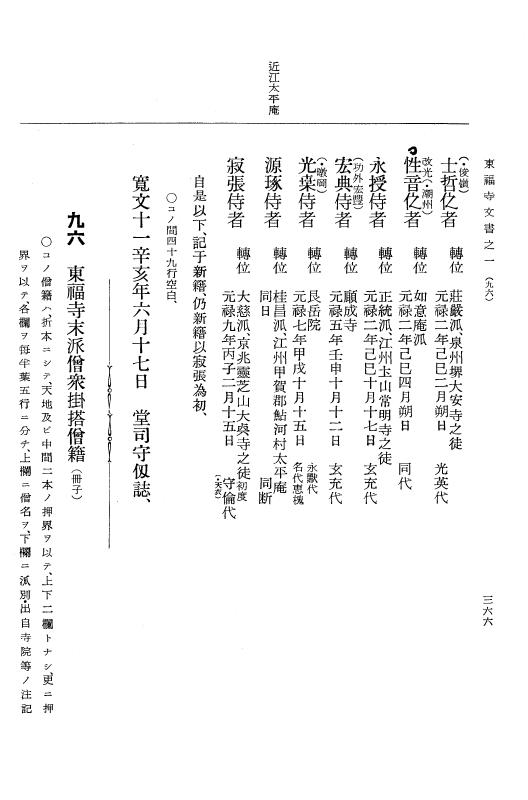 東福寺文書之一 (九六)
三六六
近江太平庵
(・俊嶺)
士哲侍者 轉位 莊嚴派、泉州堺大安寺之徒
元禄二年己巳二月朔日 光英代
改光(・潮州)
性音侍者 轉位 如意庵派
元禄二年己巳四月朔日 同代
永授侍者 轉位 正統派、江州圡山常明寺之徒
元禄二年己巳十月十七日 玄充代
(功外宏豐)
宏典侍者 轉位 願成寺
元禄五年壬申十月十二日 玄充代
(・暾岡)
光桒侍者 轉位 艮岳院
元禄七年甲戌十月十五日 永猷代
名代恵槐
源琢侍者 轉位 桂昌派、江州甲賀郡鮎河村太平庵
同日 同断
寂張侍者 轉位 大慈派、京兆靈芝山大奐寺之徒 初度
元禄九年丙子二月十五日 守倫代
(・天衣)
自是以下、記于新籍、仍新籍以寂張為初、
○コノ間四十九行空白、
寛文十一辛亥年六月十七日 堂司守伋誌、
九六 東福寺末派僧衆掛搭僧籍 (冊子)
○コノ僧籍ハ、折本ニシテ、天地及ビ中間二本ノ押界ヲ以テ、上下二欄トナシ、更ニ押
界ヲ以テ、各欄ヲ每半葉五行ニ分チ、上欄ニ僧名ヲ、下欄ニ派別・出自寺院等ノ注記